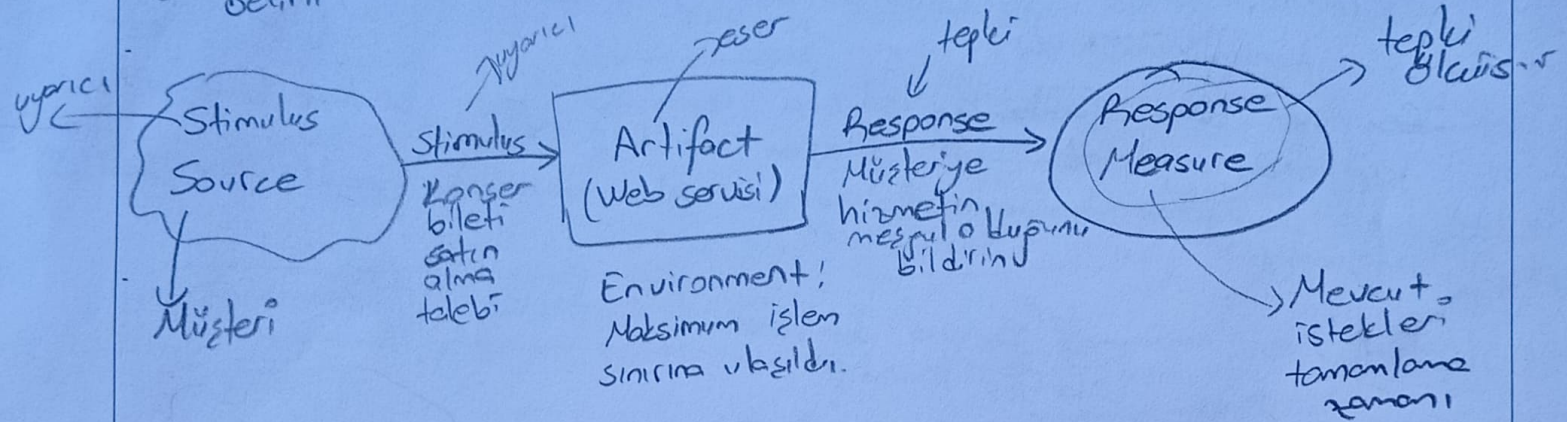 uyarıcı
Stimulus
Source
Müşteri
uyarıcı
Stimulus
Konser
bileti
satın
alma
talebi
eser
Artifact
(Web servisi)
Environment:
Maksimum işlem
sınırına ulaşıldı.
tepki
Response
Müşteriye
hizmetin
meşgul olduğunu
bildirin
Response
Measure
tepki
Mevcut
istekleri
tamamlama
zamanı